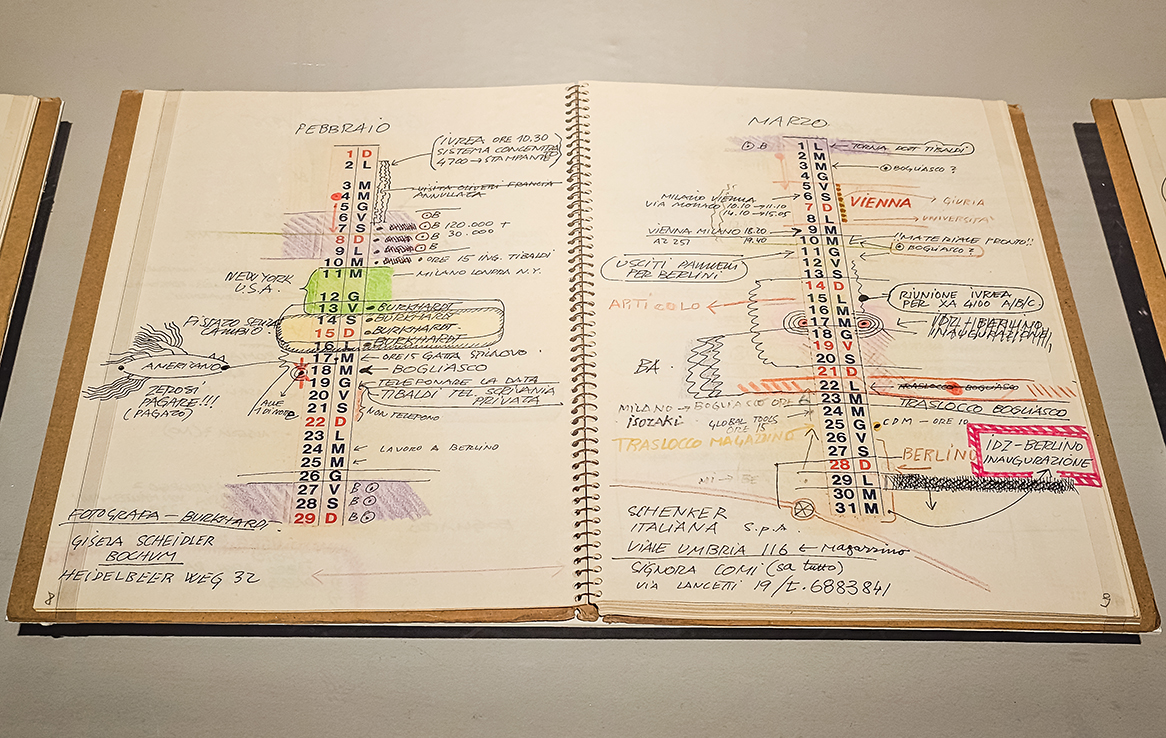 FEBBRAIO
IVREA ORE 10.30
SISTEMA CONCENTRA
4700 → STAMPANTE
1 D
2 L
3 M
4 M
5 G
6 V
7 S
8 D
9 L
10 M
11 M
12 G
13 V
14 S
15 D
16 L
17 M
18 M
19 G
20 V
21 S
22 D
23 L
24 M
25 M
26 G
27 V
28 S
29 D
VISITA OLIVETTI FRANCIA
ANNULLATA
B
B 120.000 +
B 30.000
B
ORE 15 ING. TIBALDI
MILANO LONDRA N.Y.
NEW YORK
U.S.A.
BURKHARDT
BURKHARDT
BURKHARDT
BURKHARDT
CAMBIO
AMERICANO
PAGARE!!!
(PAGATO)
ORE 15 GATTA
BOGLIASCO
TELEFONARE LA DATA
TIBALDI TEL. SCRIVANIA
PRIVATA
NON TELEFONO
LAVORO A BERLINO
B
B
B
FOTOGRAFA – BURKHARDT
GISELA SCHEIDLER
BOCHUM
HEIDELBEER WEG 32
8
MARZO
B
1 L
2 M
3 M
4 G
5 V
6 S
7 D
8 L
9 M
10 M
11 G
12 V
13 S
14 D
15 L
16 M
17 M
18 G
19 V
20 S
21 D
22 L
23 M
24 M
25 G
26 V
27 S
28 D
29 L
30 M
31 M
TORNA DOTT TIBALDI
BOGLIASCO ?
MILANO VIENNA
VIA MONACO 10.10 → 11.10
14.10 → 15.05
VIENNA → GIURIA
→ UNIVERSITA'
VIENNA MILANO 18.20
AZ 251 19.40
"MATERIALE PRONTO!!
BOGLIASCO ?
USCITI PANNELLI
PER BERLINI
ARTICOLO
RIUNIONE IVREA
PER XA 4100 A/B/C.
IDZ – BERLINO
INAUGURAZIONE
BA
TRASLOCCO BOGLIASCO
TRASLOCCO BOGLIASCO
MILANO → BOGLIASCO ORE
ISOZAKI GLOBAL TOOLS
ORE 15
TRASLOCCO MAGAZZINO
CDM – ORE 10
BERLINO
IDZ – BERLINO
INAUGURAZIONE
MI → BE
SCHENKER
ITALIANA S.p.A
VIALE UMBRIA 116 ← Magazzino
SIGNORA COMI (sa tutto)
VIA LANCETTI 19 / t. 6883841